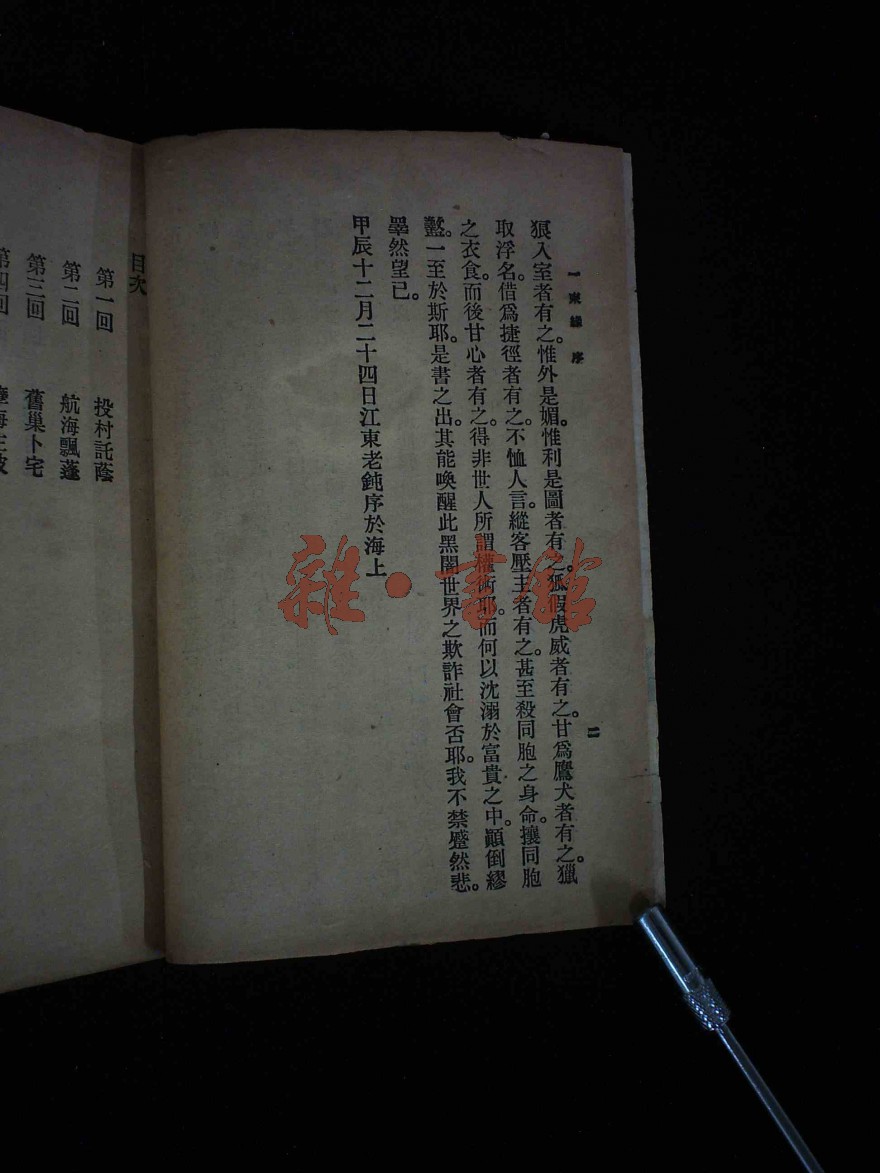 一柬緣 序
二
狽入室者有之。惟外是媚。惟利是圖者有之。狐假虎威者有之。甘爲鷹犬者有之。獵
取浮名。借爲捷徑者有之。不恤人言。縱客壓主者有之。甚至殺同胞之身命。攘同胞
之衣食。而後甘心者有之。得非世人所謂權術耶。而何以沈溺於富貴之中。顚倒繆
盭。一至於斯耶。是書之出。其能喚醒此黑闇世界之欺詐社會否耶。我不禁蹙然悲。
睪然望已。
甲辰十二月二十四日江東老鈍序於海上
目次
第一回 投村託蔭
第二回 航海飄蓬
第三回 舊巢卜宅
第四回
雜·書館